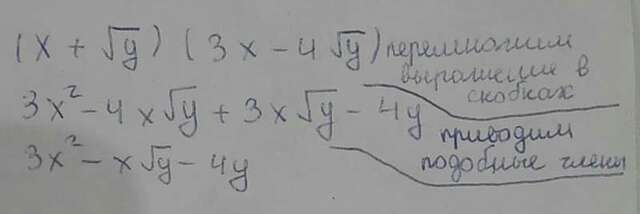 (x + √y) (3x - 4√y) перемножим
выражение в
скобках
3x² - 4x√y + 3x√y - 4y
приводим
подобные члены
3x² - x√y - 4y